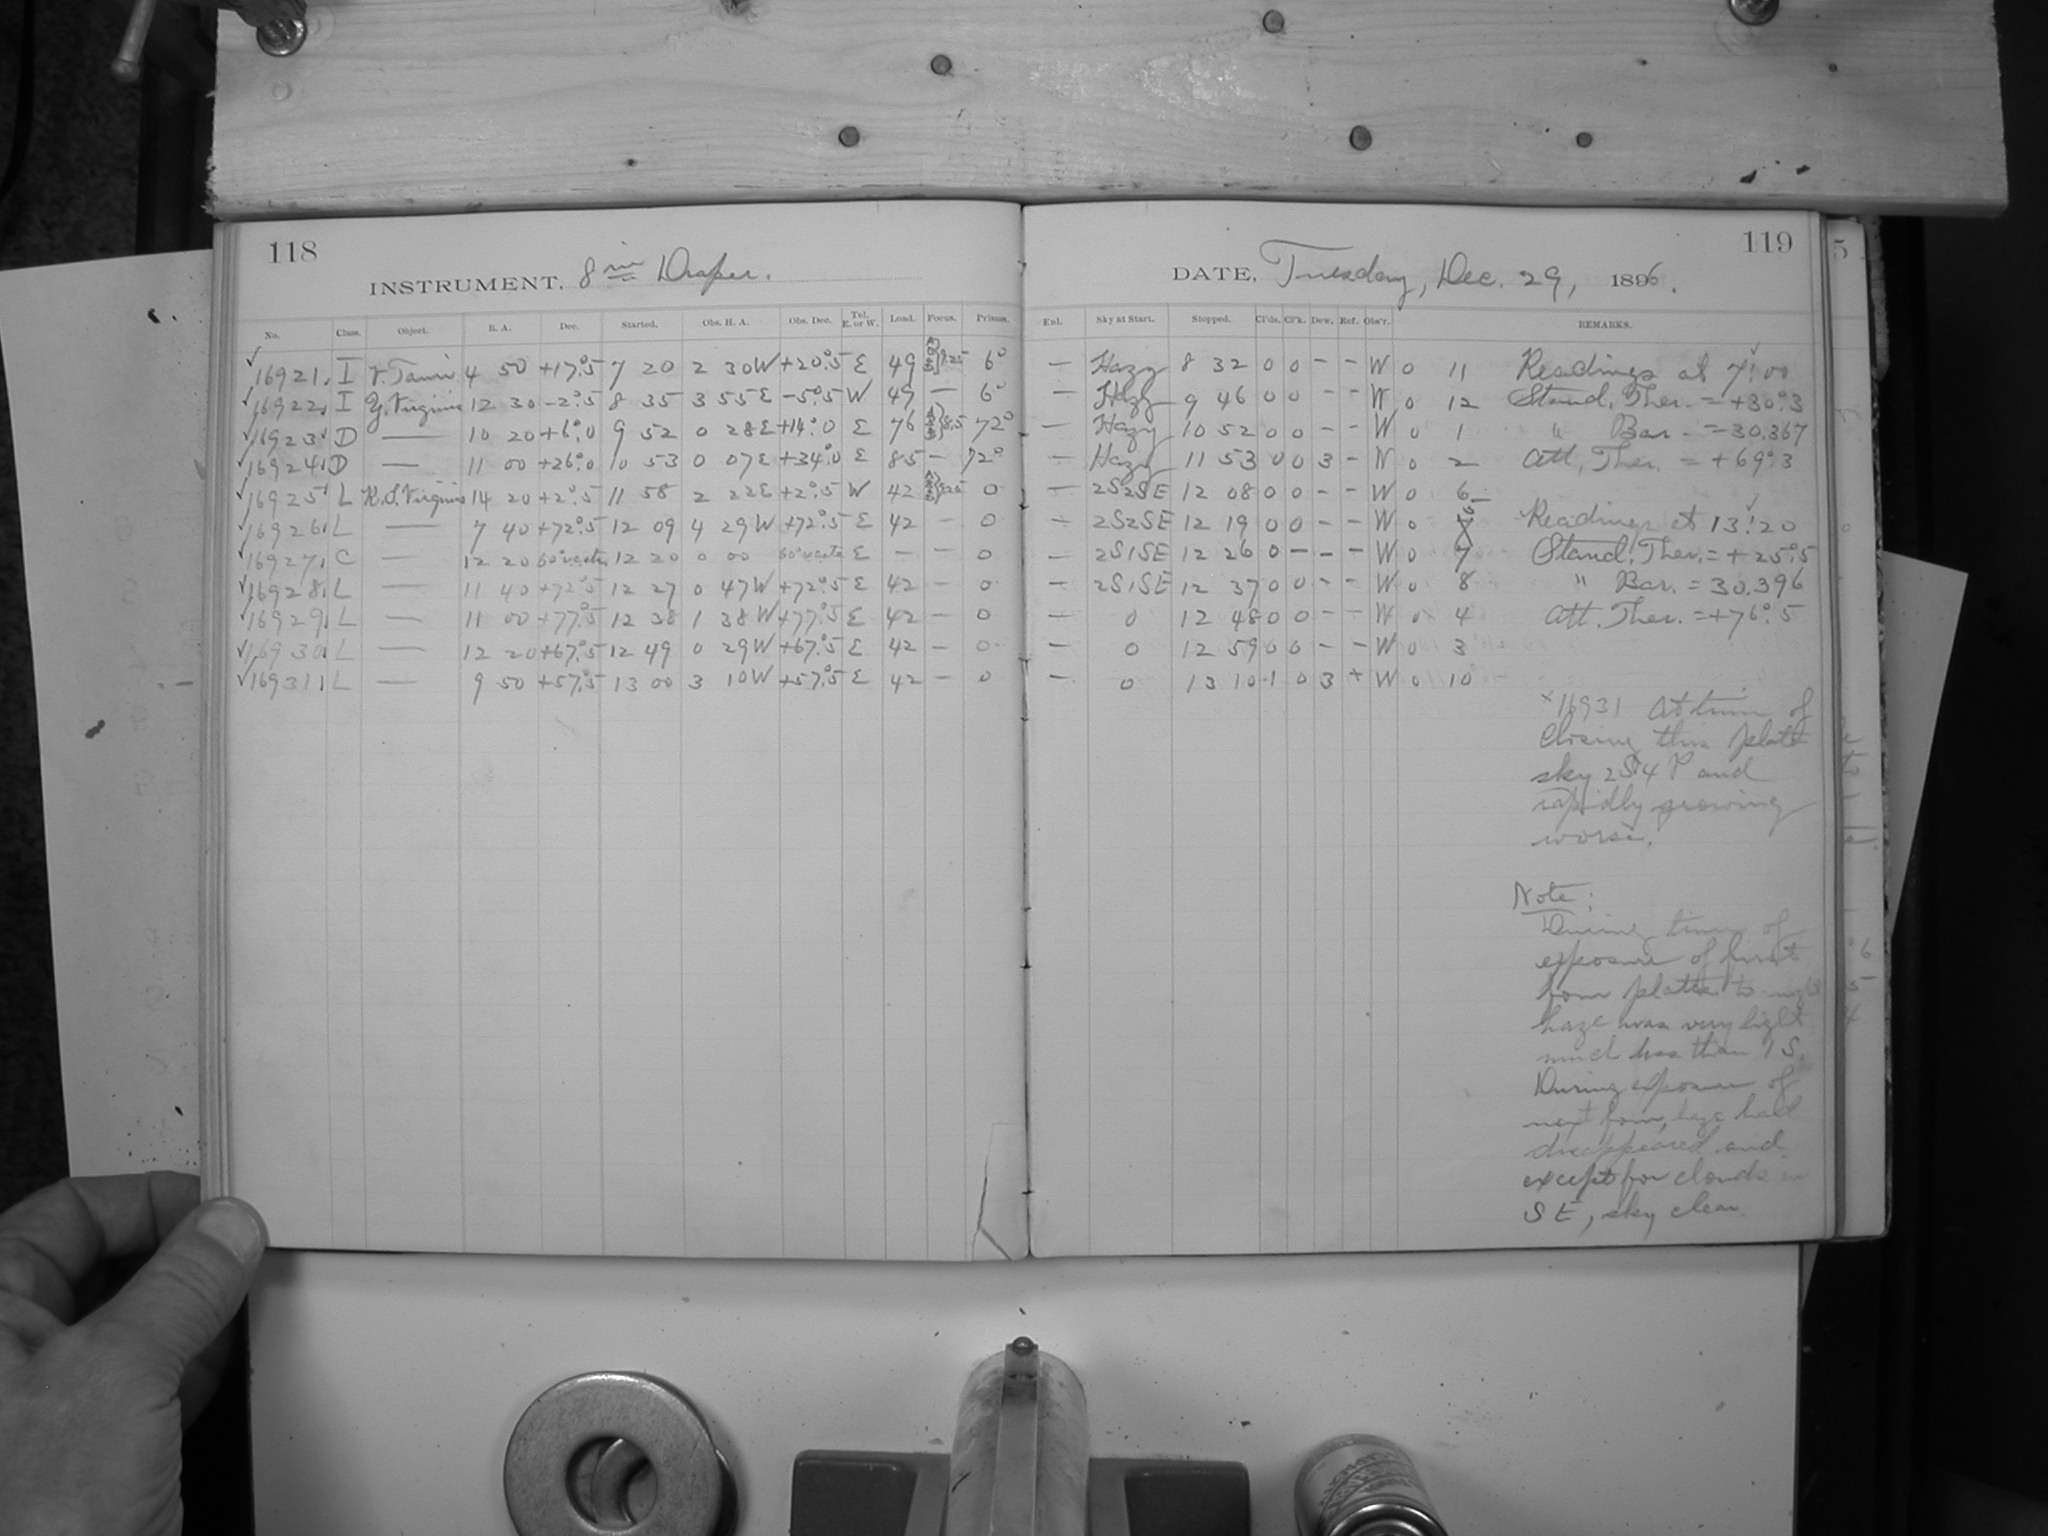 118
INSTRUMENT, 8 in Draper.
No. Class. Object. R. A. Dec. Started. Obs. H. A. Obs. Dec. Tel. E. or W. Load. Focus. Prisms.
✓16921. I γ. Tauri 4 50 +17°.5 7 20 2 30W +20°.5 E 49 9.25 6°
✓16922. I y. Virginis 12 30 -2°.5 8 35 3 55E -5°.5 W 49 — 6°
✓16923. D — 10 20 +6°.0 9 52 0 28E +14°.0 E 76 8.5 72°
✓16924. D — 11 00 +26°.0 10 53 0 07E +34°.0 E 85 — 72°
✓16925. L R.S. Virginis 14 20 +2°.5 11 58 2 22E +2°.5 W 42 9.25 0
✓16926. L — 7 40 +72°.5 12 09 4 29W +72°.5 E 42 — 0
✓16927. C — 12 20 12 20 0 00 E — — 0
✓16928. L — 11 40 +72°.5 12 27 0 47W +72°.5 E 42 — 0
✓16929. L — 11 00 +77°.5 12 38 1 38W +77°.5 E 42 — 0
✓16930. L — 12 20 +67°.5 12 49 0 29W +67°.5 E 42 — 0
✓16931. L — 9 50 +57°.5 13 00 3 10W +57°.5 E 42 — 0
119
DATE, Tuesday, Dec. 29, 1896.
Enl. Sky at Start. Stopped. Cl'ds. Cl'k. Dew. Ref. Obs'r. REMARKS.
— Hazy 8 32 0 0 - - W 0 11 Readings at 7h.00
— Hazy 9 46 0 0 - - W 0 12 Stand. Ther. = +30°.3
— Hazy 10 52 0 0 - - W 0 1 " Bar. = 30.367
— Hazy 11 53 0 0 3 - W 0 2 Att. Ther. = +69°.3
— 2S2SE 12 08 0 0 - - W 0 6
— 2S2SE 12 19 0 0 - - W 0 5 Readings at 13h.20
— 2S1SE 12 26 0 - - - W 0 7 Stand. Ther. = +25°.5
— 2S1SE 12 37 0 0 - - W 0 8 " Bar. = 30.396
— 0 12 48 0 0 - - W 0 4 Att. Ther. = +76°.5
— 0 12 59 0 0 - - W 0 3
— 0 13 10 1 0 3 + W 0 10
×16931 At time of
closing this plate
sky 2S4P and
rapidly growing
worse.
Note:
During time of
exposure of first
four plates to-night
haze was very light
much less than 1 S.
During exposure of
next four, haze had
disappeared and
except for clouds in
SE, sky clear.